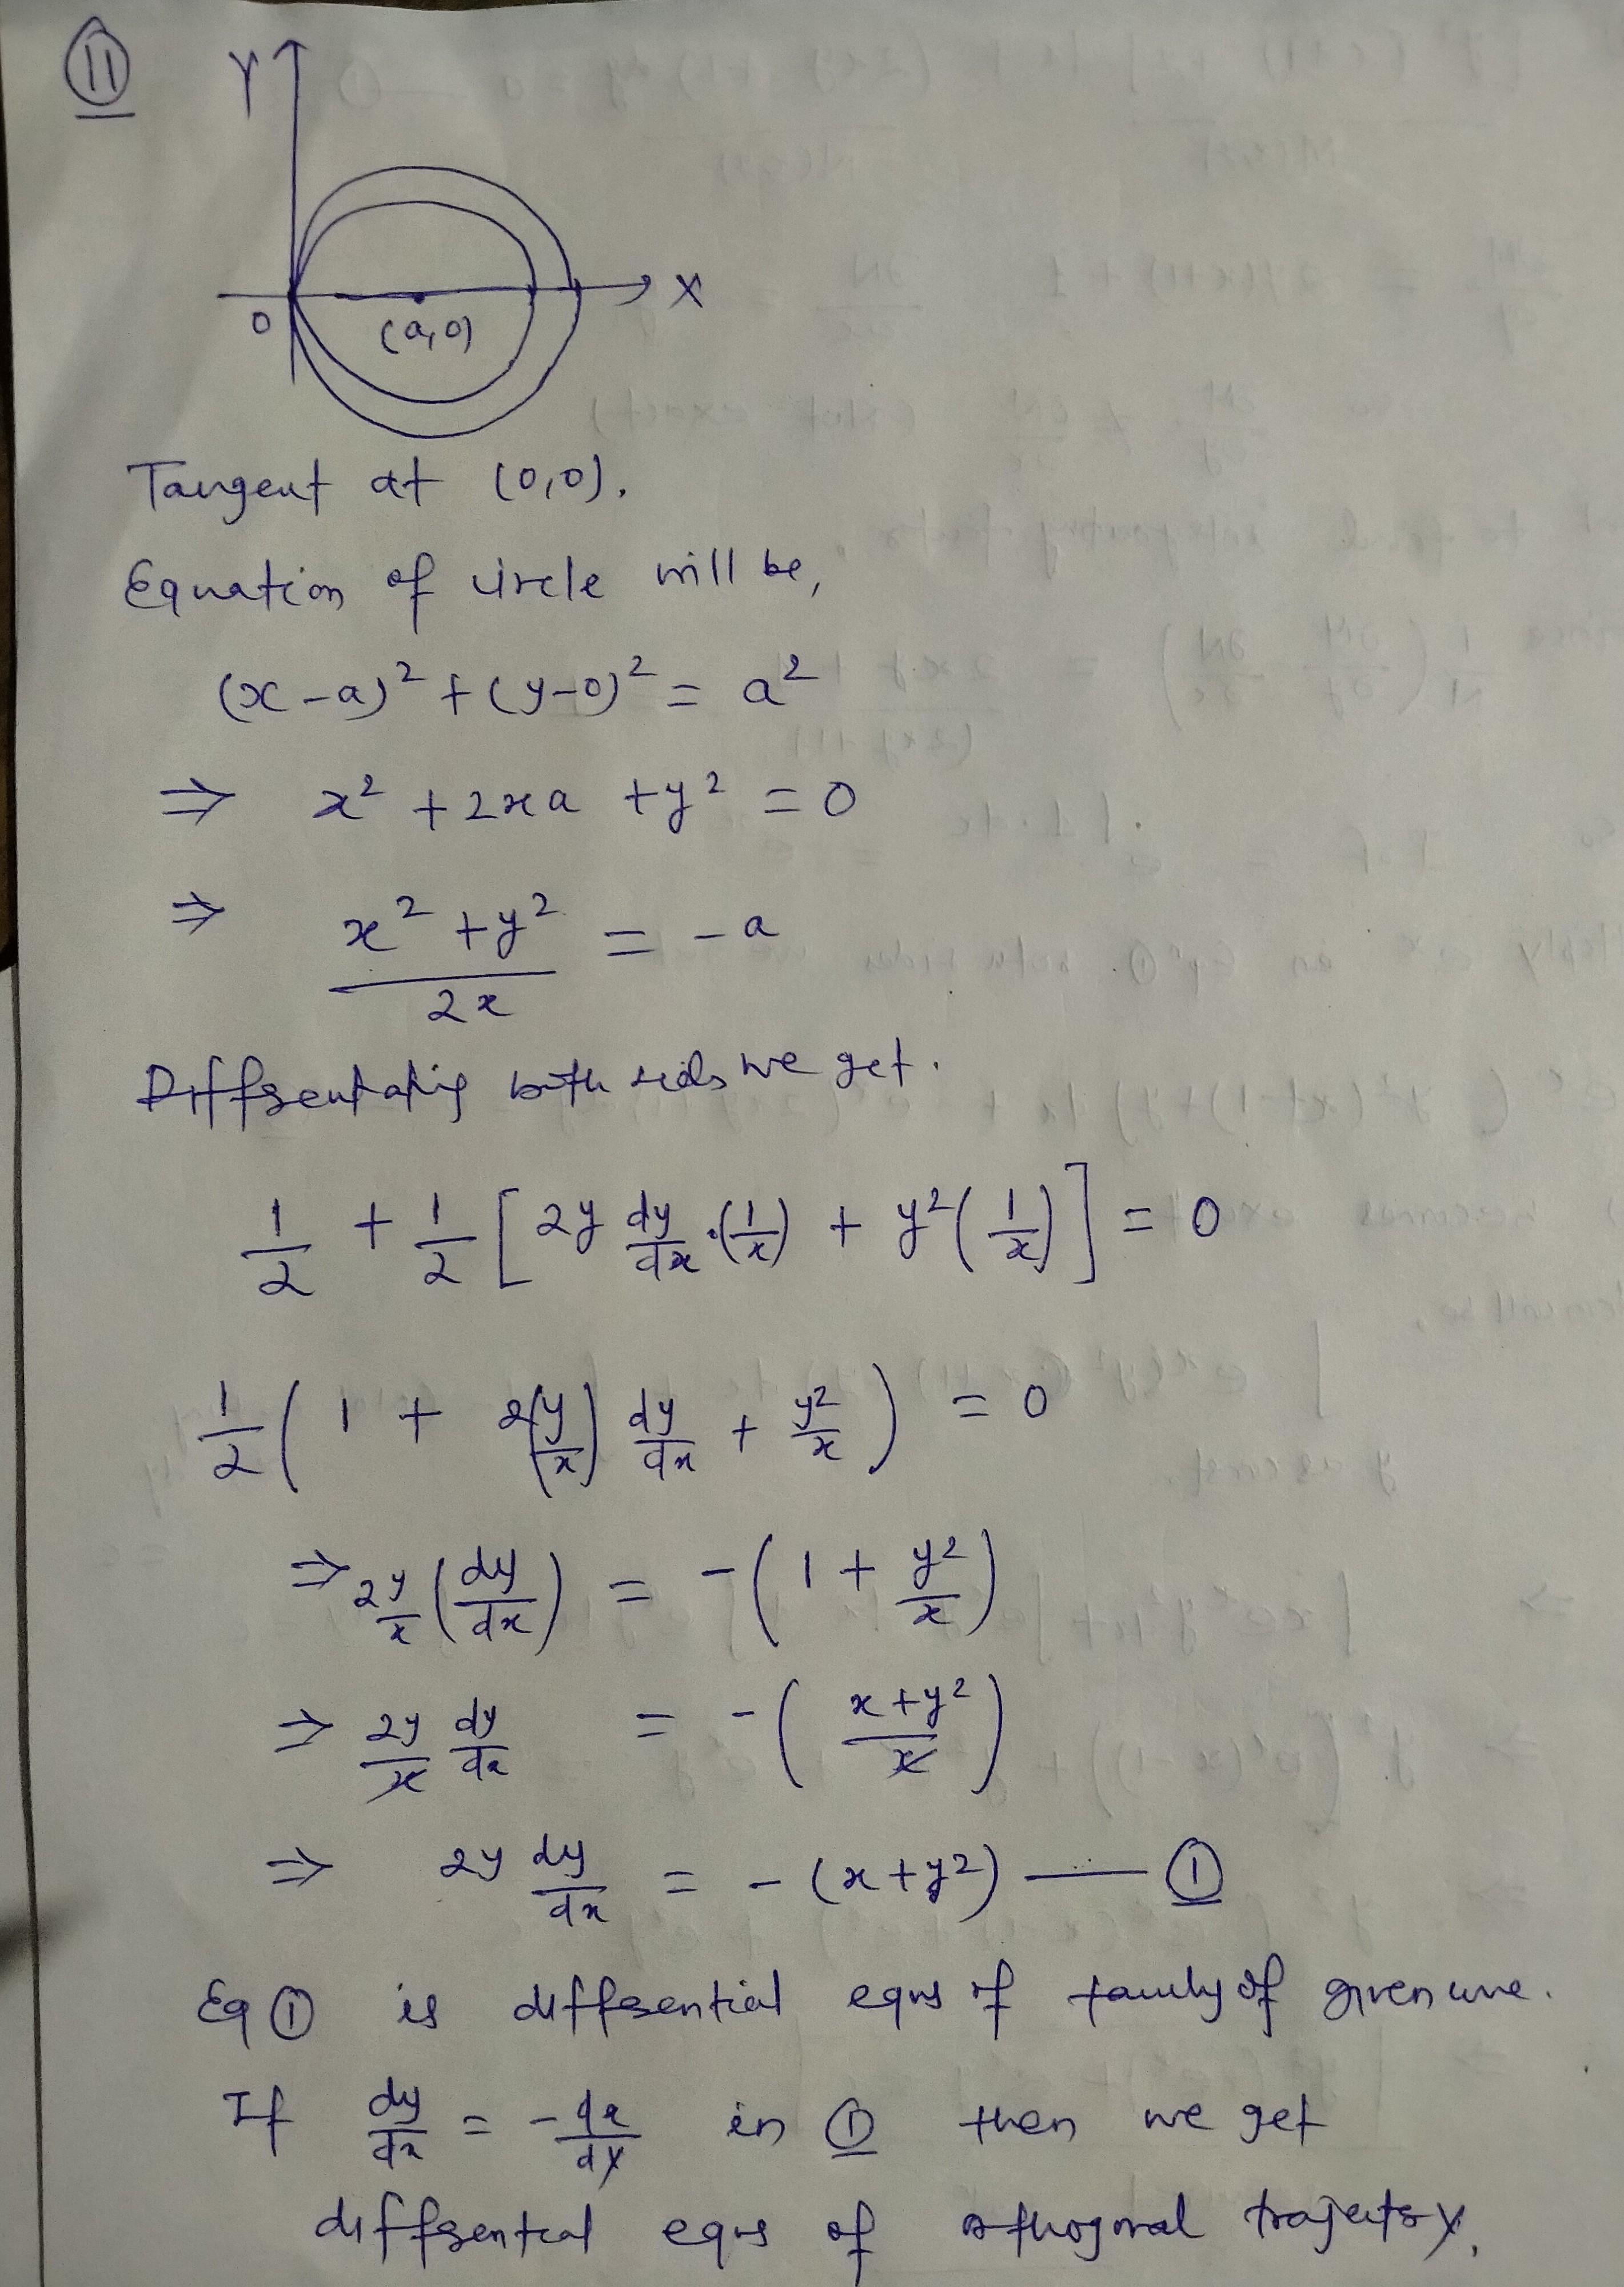 11
Y
X
0
(a,0)
Tangent at (0,0).
Equation of circle will be,
(x-a)² + (y-0)² = a²
⇒ x² + 2xa + y² = 0
⇒ (x² + y²)/2x = -a
Differentating both sids we get.
1/2 + 1/2 [2y dy/dx · (1/x) + y² (1/x)] = 0
1/2 (1 + 2(y/x) dy/dx + y²/x) = 0
⇒ 2y/x (dy/dx) = -(1 + y²/x)
⇒ 2y/x dy/dx = -((x + y²)/x)
⇒ 2y dy/dx = -(x + y²) — ①
Eq ① is differential eqns of family of given curve.
If dy/dx = -dx/dy in ① then we get
differential eqns of orthogonal trajectory.